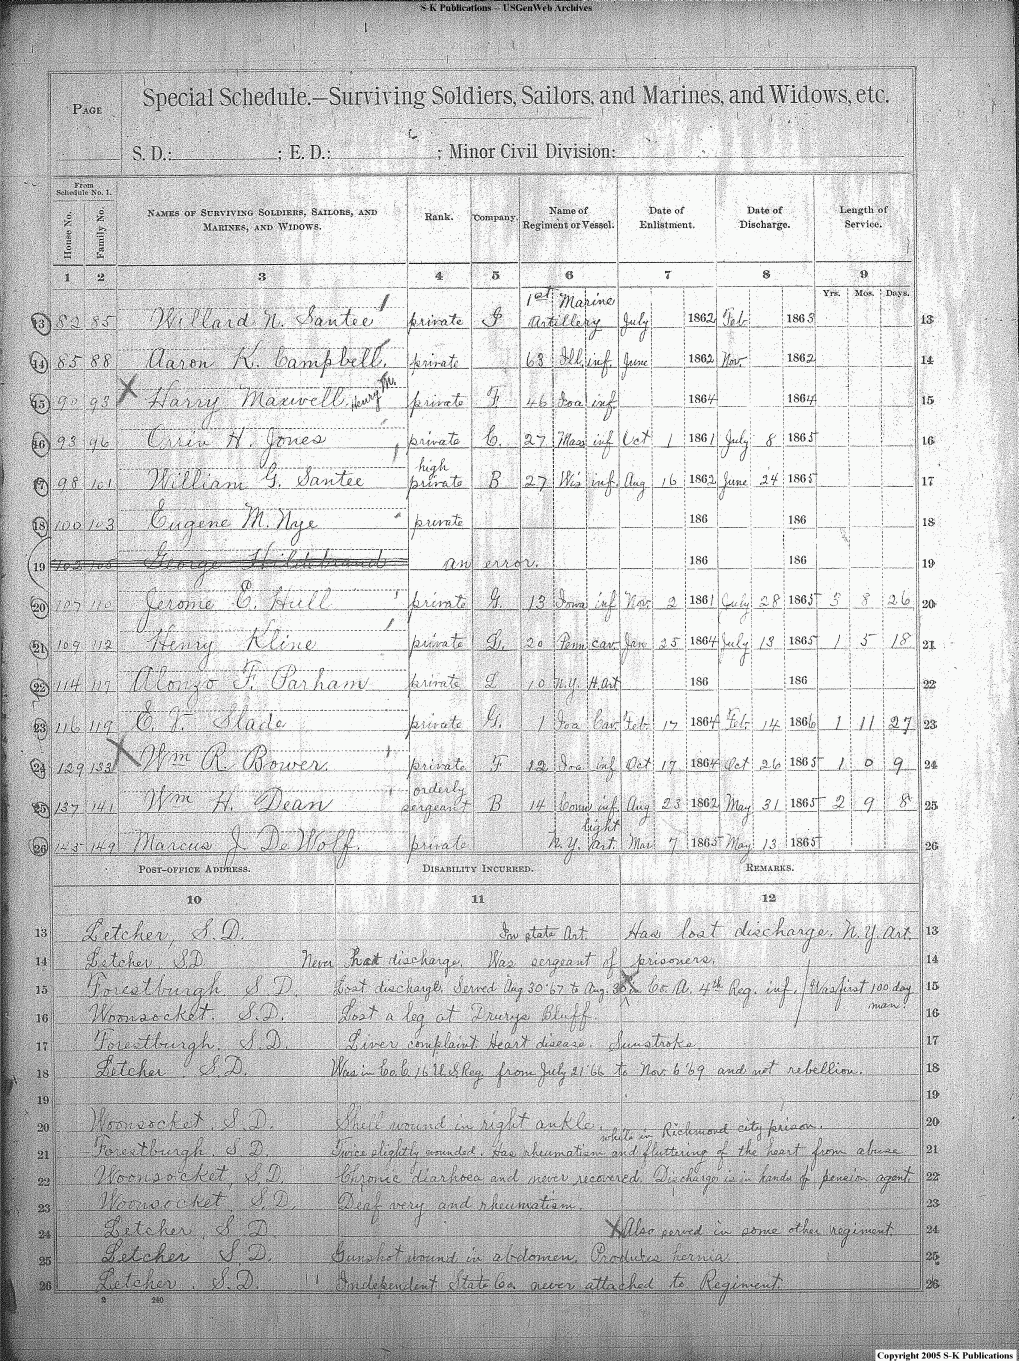 S-K Publications – USGenWeb Archives
PAGE
Special Schedule.—Surviving Soldiers, Sailors, and Marines, and Widows, etc.
S. D.: ; E. D.: ; Minor Civil Division:
From Schedule No. 1.
House No. Family No. NAMES OF SURVIVING SOLDIERS, SAILORS, AND MARINES, AND WIDOWS. Rank. Company. Name of Regiment or Vessel. Date of Enlistment. Date of Discharge. Length of Service.
1 2 3 4 5 6 7 8 9
Yrs. Mos. Days.
1st Marine
13 82 85 Willard N. Santee private Artillery July 1862 Feb 1863 13
14 85 88 Aaron K. Campbell. private 63 Ill. inf. June 1862 Nov. 1862 14
15 90 93 Harry Maxwell. Henry M. private F 46 Ioa inf 1864 1864 15
16 93 96 Orrin H. Jones private C. 27 Mass inf Oct 1 1861 July 8 1865 16
high
17 98 101 William G. Santee private B 27 Wis inf. Aug 16 1862 June 24 1865 17
18 100 103 Eugene M. Nye private 186 186 18
19 George Hildebrand an error. 186 186 19
20 107 110 Jerome E. Hull private G. 13 Iowa inf Nov. 2 1861 July 28 1865 3 8 26 20
21 109 112 Henry Kline private L. 20 Penn cav. Jan 25 1864 July 13 1865 1 5 18 21
22 114 117 Alonzo F. Parham private L 10 N.Y. H. art 186 186 22
23 116 119 E. J. Slade private G. 1 Ioa Cav. Feb. 17 1864 Feb. 14 1866 1 11 27 23
24 129 133 Wm R. Bower. private F 12 Ioa inf Oct 17 1864 Oct 26 1865 1 0 9 24
orderly
25 137 141 Wm H. Dean sergeant B 14 Conn inf Aug 23 1862 May 31 1865 2 9 8 25
light
26 145 149 Marcus J. De Wolf. private N.Y. art. Mar 7 1865 May 13 1865 26
POST-OFFICE ADDRESS. DISABILITY INCURRED. REMARKS.
10 11 12
13 Letcher, S.D. In state Art. Has lost discharge. N.Y Art. 13
14 Letcher S.D Never had discharge. Was sergeant of prisoners. 14
15 Forestburgh S.D. Lost discharge. Served Aug 30 '67 to Aug. Co. A. 4th Reg. inf. Was first 100 day man. 15
16 Woonsocket. S.D. Lost a leg at Drurys Bluff. 16
17 Forestburgh. S.D. Liver complaint Heart disease. Sunstroke 17
18 Letcher S.D. Was in Co. C. 16 U.S Reg. from July 21 '66 to Nov 6 '69 and not rebellion. 18
19 19
20 Woonsocket. S.D. Shell wound in right ankle. 20
while in Richmond city prison.
21 Forestburgh S.D. Twice slightly wounded. Has rheumatism and fluttering of the heart from abuse 21
22 Woonsocket, S.D. Chronic diarhoea and never recovered. Discharge is in hands of pension agent. 22
23 Woonsocket S.D. Deaf very and rheumatism. 23
24 Letcher, S.D. X Also served in some other regiment. 24
25 Letcher S.D. Gunshot wound in abdomen. Produces hernia 25
26 Letcher. S.D. Independent State Co. never attached to Regiment. 26
2 240
Copyright 2005 S-K Publications